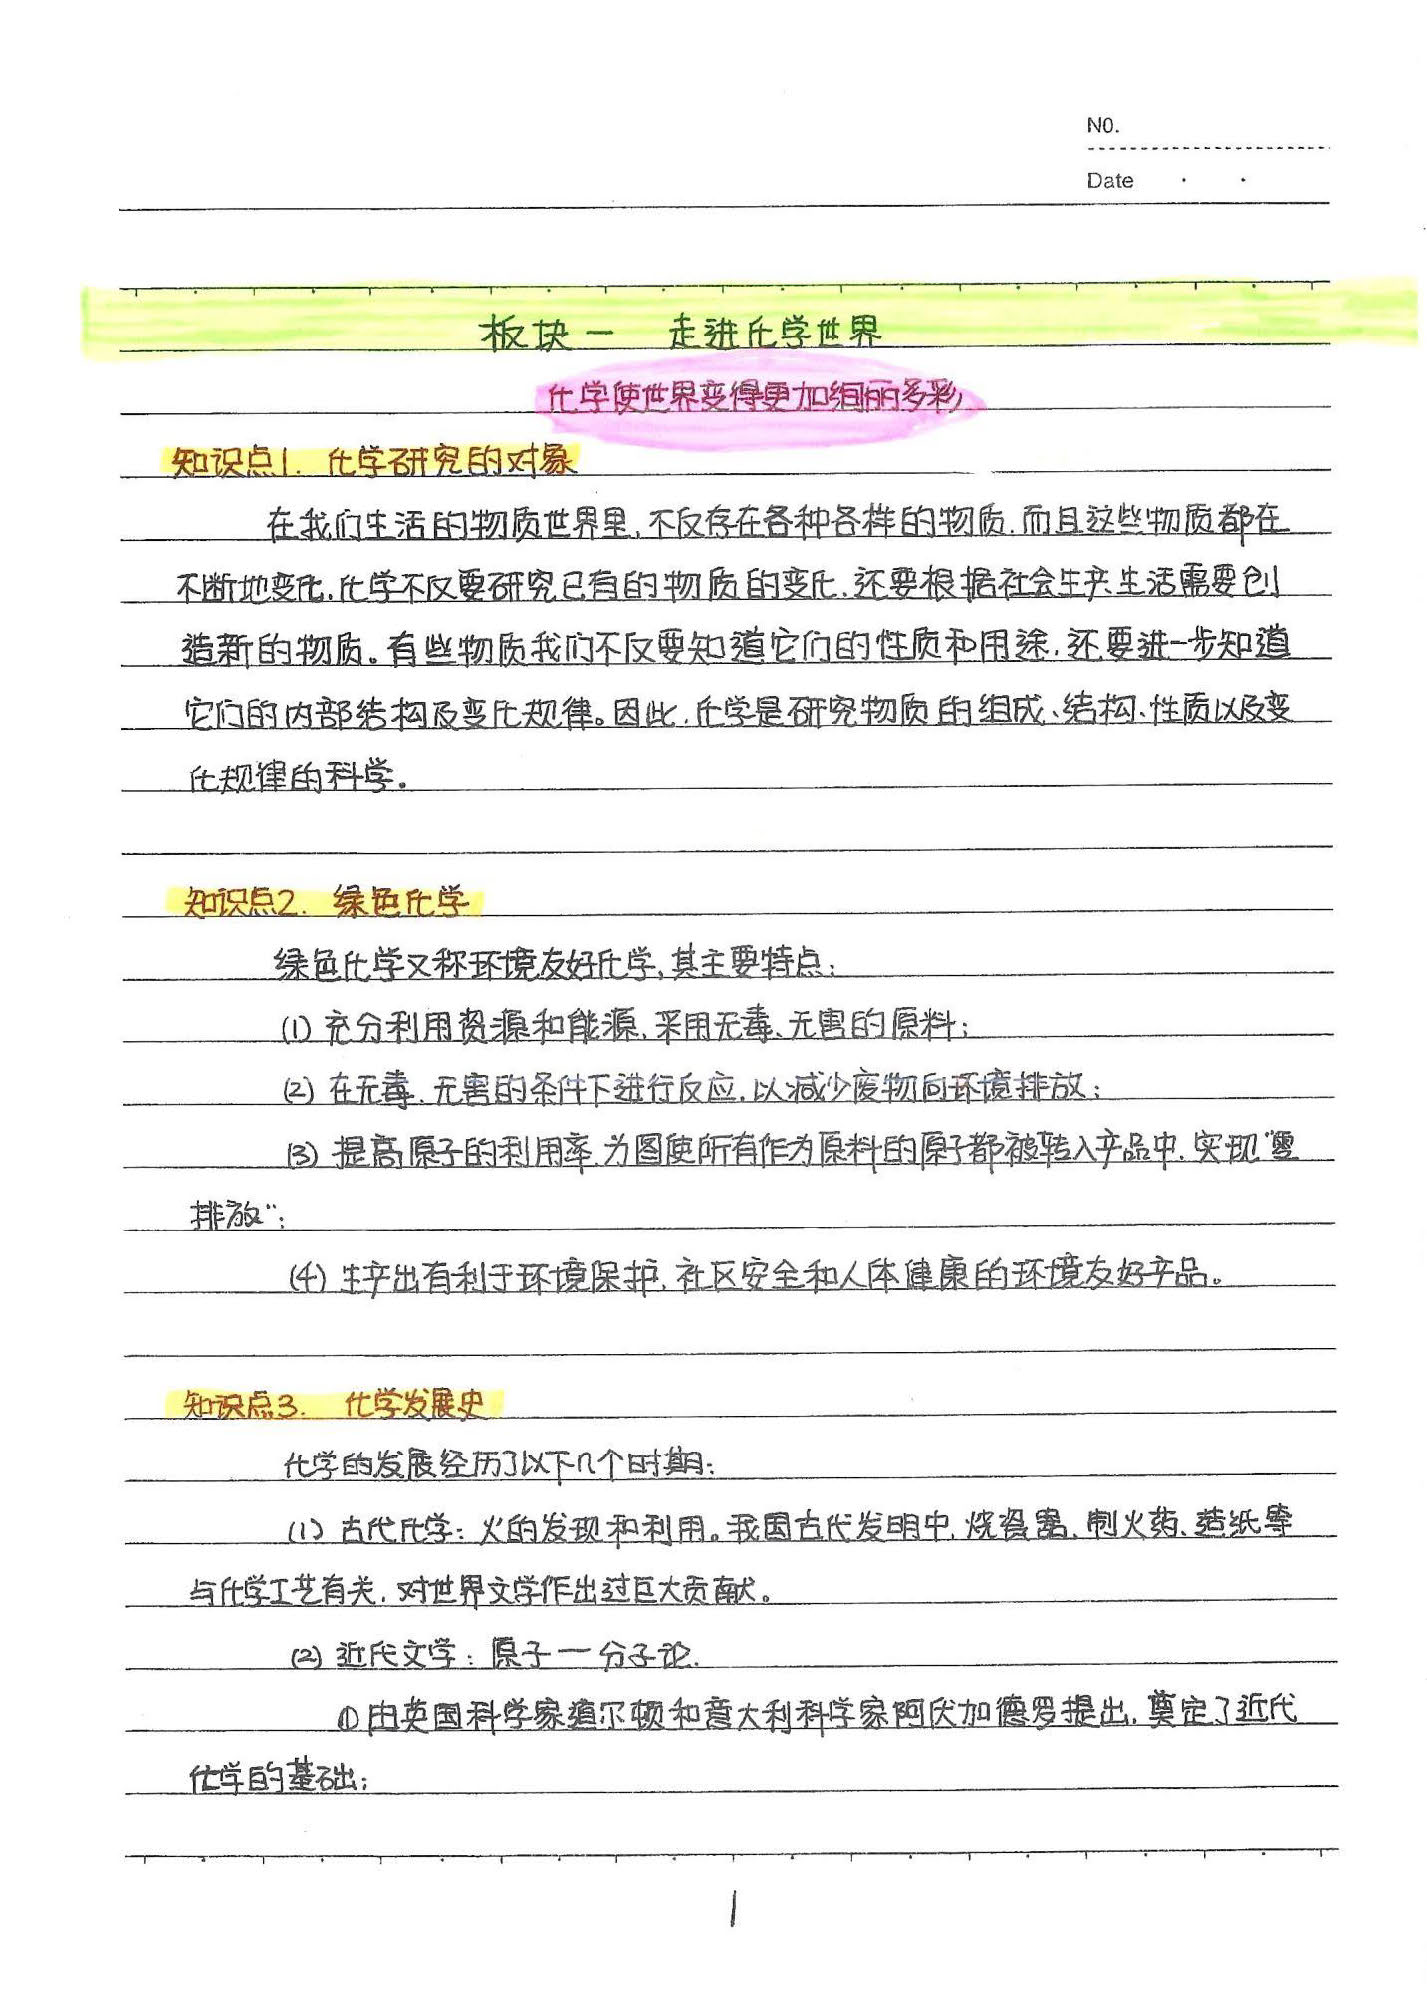 NO.
Date
板块一 走进化学世界
化学使世界变得更加绚丽多彩
知识点1. 化学研究的对象
在我们生活的物质世界里,不仅存在各种各样的物质.而且这些物质都在
不断地变化.化学不仅要研究已有的物质的变化.还要根据社会生产生活需要创
造新的物质。有些物质我们不仅要知道它们的性质和用途.还要进一步知道
它们的内部结构及变化规律。因此.化学是研究物质的组成、结构、性质以及变
化规律的科学。
知识点2. 绿色化学
绿色化学又称环境友好化学,其主要特点:
(1) 充分利用资源和能源.采用无毒、无害的原料;
(2) 在无毒、无害的条件下进行反应.以减少废物向环境排放;
(3) 提高原子的利用率.力图使所有作为原料的原子都被转入产品中.实现"零
排放";
(4) 生产出有利于环境保护.社区安全和人体健康的环境友好产品。
知识点3. 化学发展史
化学的发展经历了以下几个时期:
(1) 古代化学: 火的发现和利用。我国古代发明中.烧瓷器、制火药、造纸等
与化学工艺有关.对世界文学作出过巨大贡献。
(2) 近代文学: 原子一分子论.
①由英国科学家道尔顿和意大利科学家阿伏加德罗提出.奠定了近代
化学的基础;
1